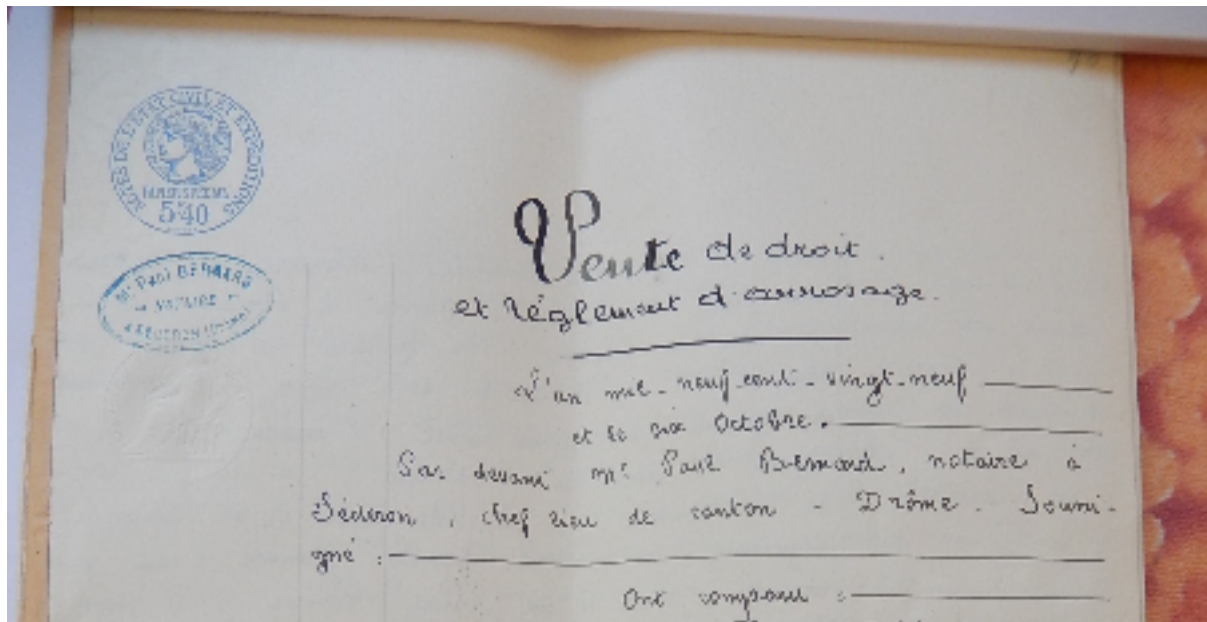 COPIES DE L'ÉTAT CIVIL ET EXPÉDITIONS
PAPIER SPÉCIAL
5F40
Me Paul BERNARD
NOTAIRE
A SÉDERON (Drôme)
Vente de droit
et Réglement d'arrosage.
L'an mil-neuf-cent-vingt-neuf
et le six Octobre.
Par devant Me Paul Bernard, notaire à
Séderon, chef lieu de canton - Drôme. Soussi-
gné :
Ont comparu :